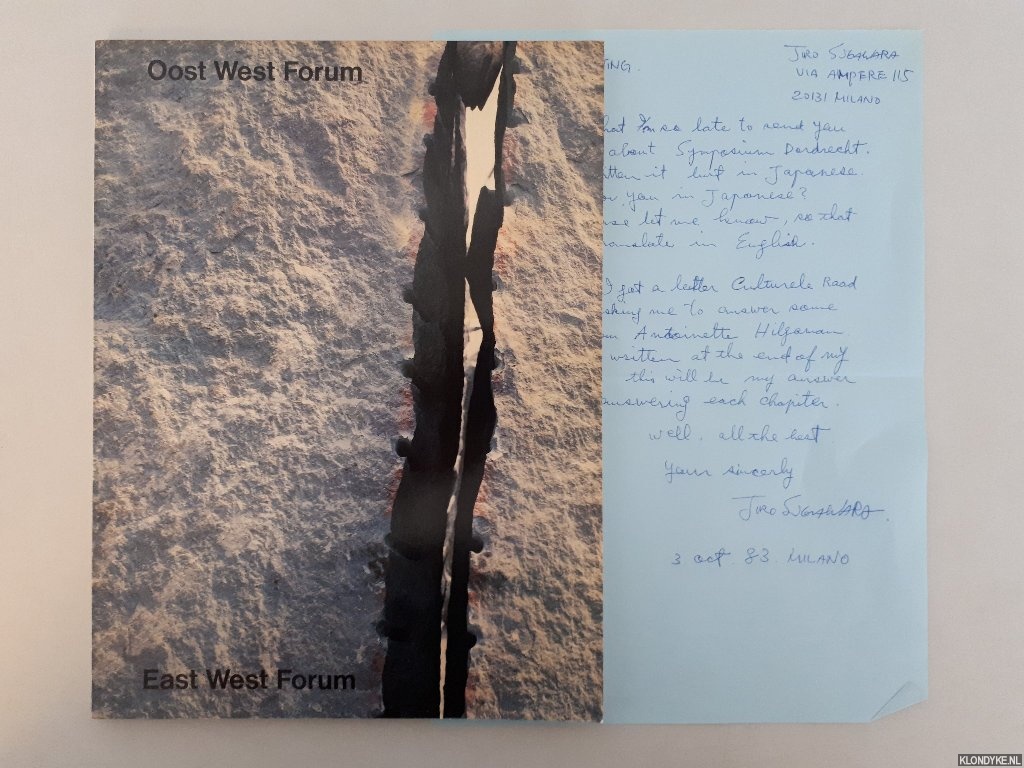 Oost West Forum
East West Forum
TING.
JIRO SUGAWARA
VIA AMPERE 115
20131 MILANO
hat I'm so late to send you
about Symposium Dordrecht.
tten it but in Japanese.
or you in Japanese?
use let me know, so that
ranslate in English.
I got a letter Culturele Raad
sking me to answer some
Antoinette Hilgeman
written at the end of my
this will be my answer
answering each chapiter.
well. all the best
Your sincerly
JIRO SUGAWARA.
3 oct. 83. MILANO
KLONDYKE.NL